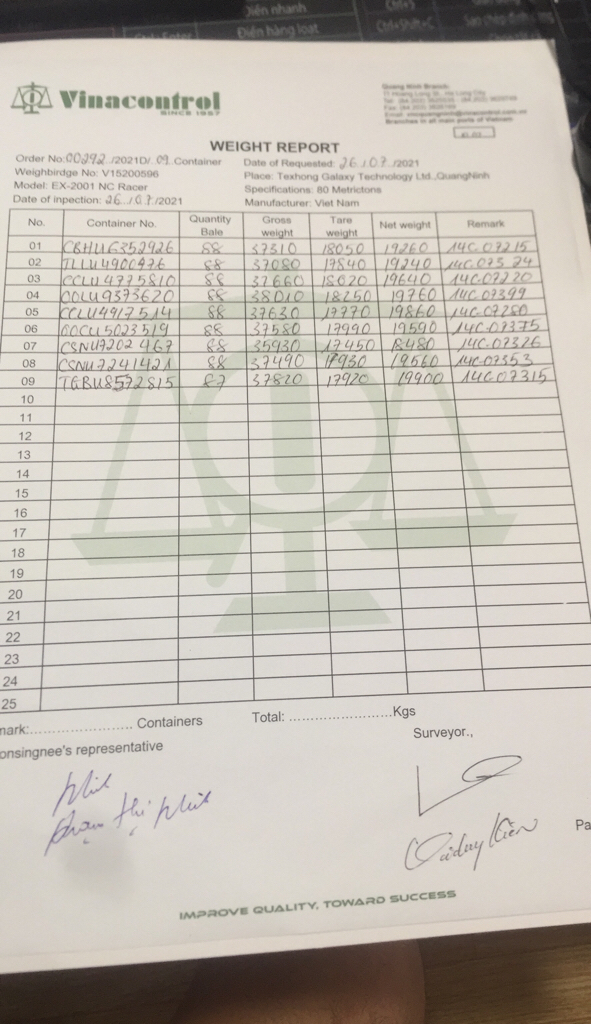 Điền nhanh
Ctrl+Enter
Điền hàng loạt
Ctrl+Shift+C
Vinacontrol
SINCE 1957
Quang Ninh Branch:
Branches in all main ports of Vietnam
WEIGHT REPORT
Order No: 00292 /2021D/ 09 Container
Date of Requested: 26/07/2021
Weighbirdge No: V15200596
Place: Texhong Galaxy Technology Ltd.,QuangNinh
Model: EX-2001 NC Racer
Specifications: 80 Metrictons
Date of inpection: 26/07/2021
Manufacturer: Viet Nam
No. Container No. Quantity Bale Gross weight Tare weight Net weight Remark
01 CBHU6352926 88 37310 18050 19260 14C.07215
02 TLLU4900476 88 37080 17840 19240 14C.07324
03 CCLU4775810 88 37660 18020 19640 14C.07220
04 OOLU9373620 88 38010 18250 19760 14C.07399
05 CCLU4917514 88 37630 17770 19860 14C.07280
06 OOCU5023519 88 37580 17990 19590 14C.07375
07 CSNU7202467 88 35930 17450 18480 14C.07326
08 CSNU7241421 88 37490 17930 19560 14C07353
09 TGBU8572815 87 37820 17920 19900 14C07315
10
11
12
13
14
15
16
17
18
19
20
21
22
23
24
25
mark:........................ Containers Total: ........................Kgs
onsingnee's representative
Surveyor.,
Phạm thị
Pa
IMPROVE QUALITY, TOWARD SUCCESS